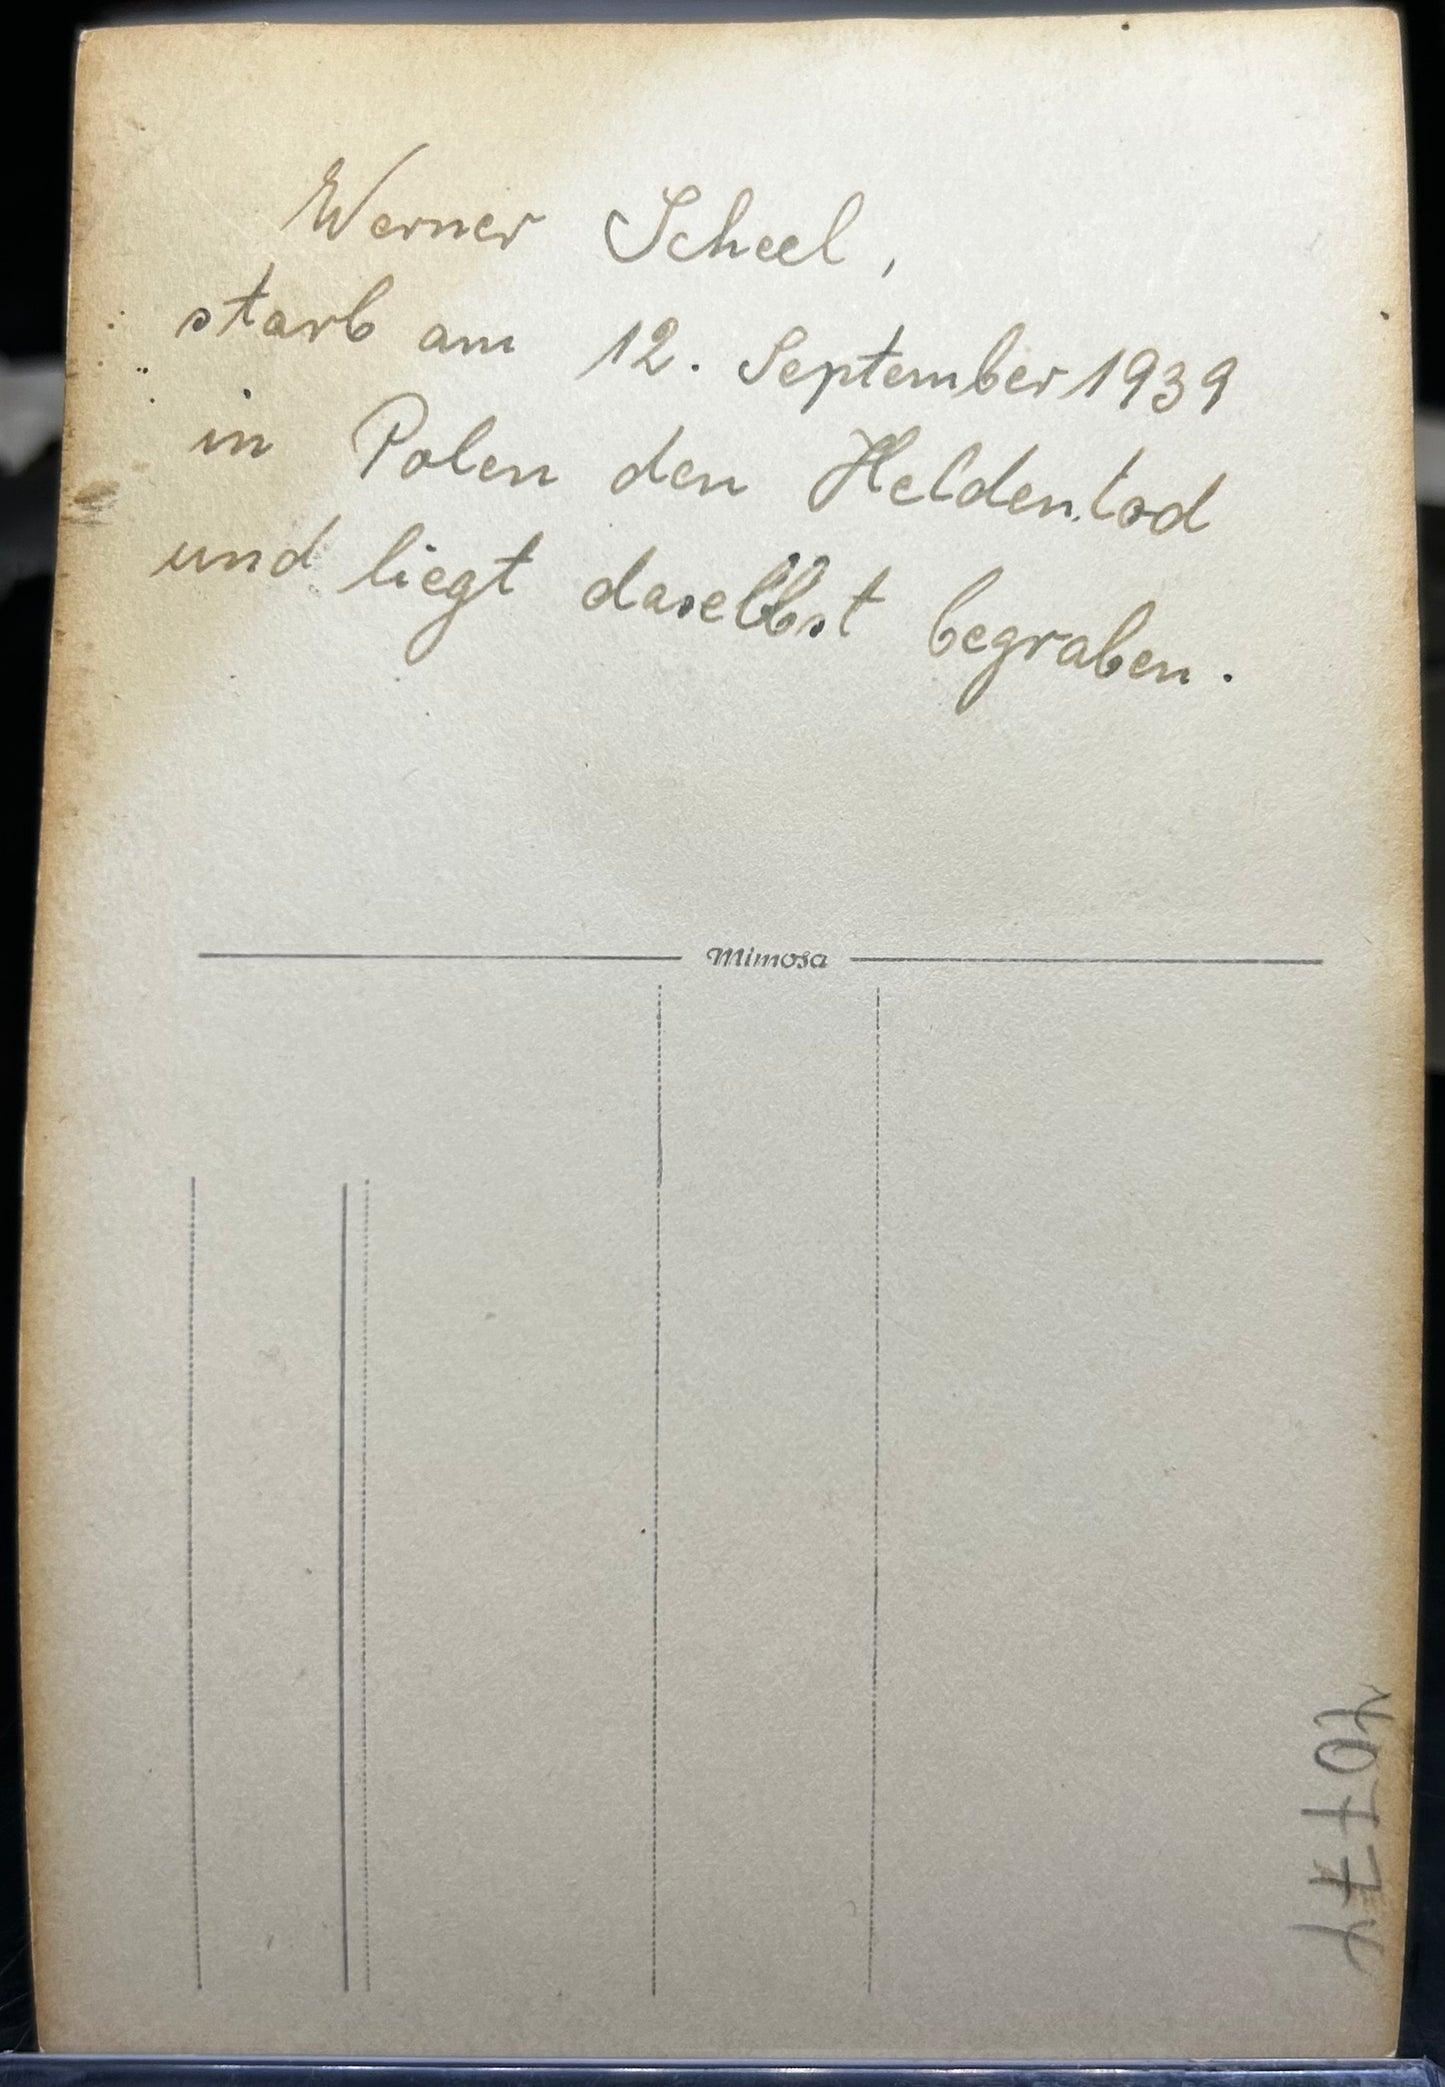 Werner Scheel,
starb am 12. September 1939
in Polen den Heldentod
und liegt daselbst begraben.
Mimosa